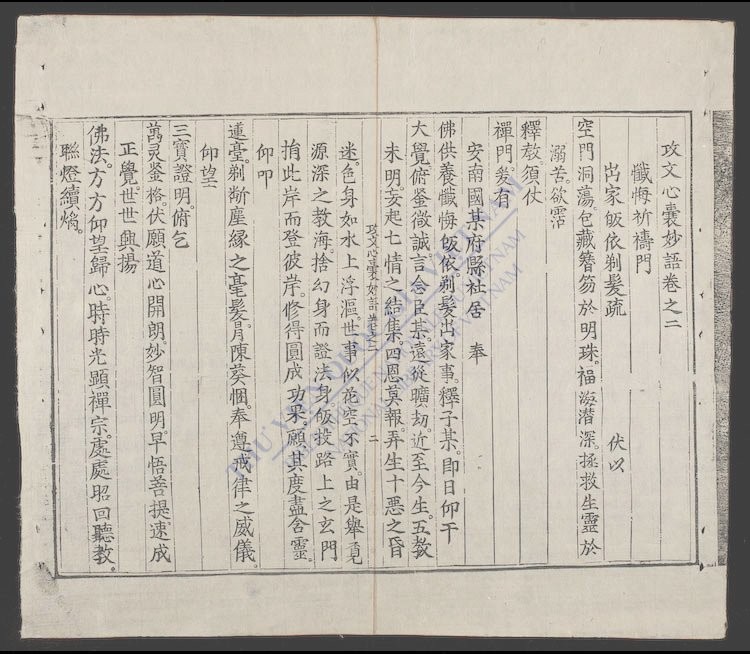 攻文心囊妙語卷之二
懺悔祈禱門
出家皈依剃髮疏　伏以
空門洞蕩包藏簪笏於明珠。福海潛深。拯救生靈於
溺苦。欲霑
釋教。須仗
禪門。爰有
安南國某府縣社居　奉
佛供養懺悔皈依。剃髮出家事。釋子某。即日仰干
大覺俯鑒微誠。言念臣某。遠從曠劫。近至今生。五教
未明。妄起七情之結集。四恩莫報。弄生十惡之昏
攻文心囊妙語卷之二　二
迷。色身如水上浮漚。世事似花空不實。由是舉覓
源深之教海。捨幻身而證法身。皈投路上之玄門
捐此岸而登彼岸。修得圓成功果。願其度盡含靈。
仰叩
蓮臺。剃斷塵緣之毫髮。用陳葵悃。奉遵戒律之威儀。
仰望
三寶證明。俯乞
萬灵鉴格。伏願道心開朗。妙智圓明。早悟菩提。速成
正覺。世世興揚
佛法。方方仰望歸心。時時光顯禪宗。處處昭回聽教。
聯燈續焔。
THƯ VIỆN QUỐC GIA VIỆT NAM
NATIONAL LIBRARY OF VIETNAM